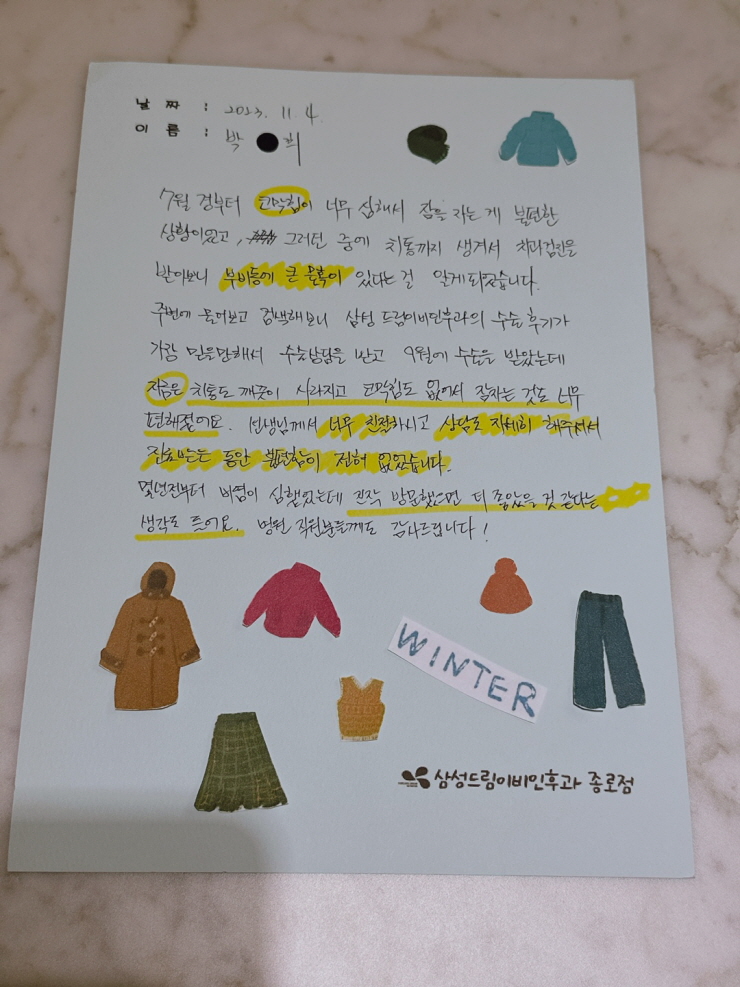 날 짜 : 2023. 11. 4.
이 름 : 박 희
7월 경부터 코막힘이 너무 심해서 잠을 자는 게 불편한
상황이었고, 그러던 중에 치통까지 생겨서 치과검진을
받아보니 부비동에 큰 물혹이 있다는 걸 알게되었습니다.
주변에 물어보고 검색해보니 삼성드림이비인후과의 수술 후기가
가장 믿을만해서 수술상담을 받고 9월에 수술을 받았는데
지금은 치통도 깨끗이 사라지고 코막힘도 없어서 잠자는 것도 너무
편해졌어요. 선생님께서 너무 친절하시고 상담도 자세히 해주셔서
진료받는 동안 불편함이 전혀 없었습니다.
몇년전부터 비염이 심했었는데 진작 방문했으면 더 좋았을 것 같다는
생각도 들어요. 병원 직원분들께도 감사드립니다!
WINTER
삼성드림이비인후과 종로점